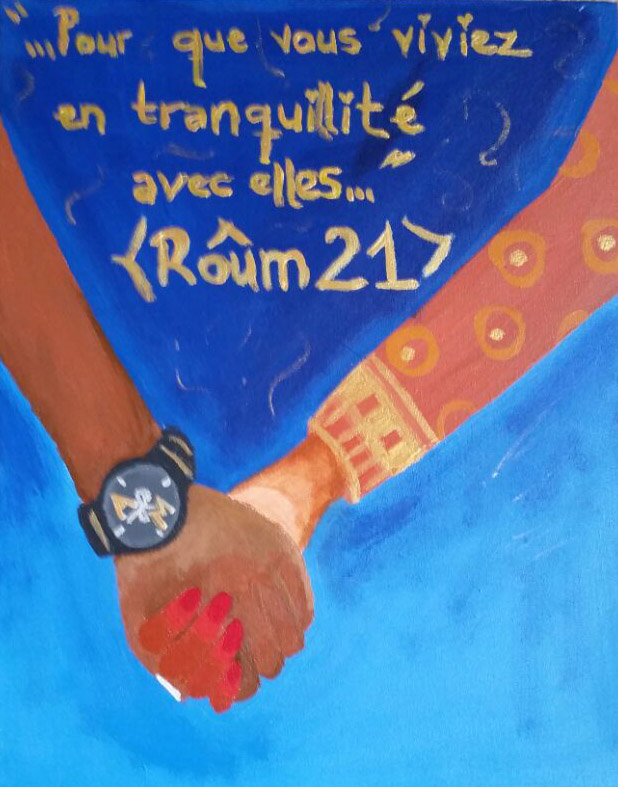 "...Pour que vous viviez
en tranquillité
avec elles..."
(Rôum 21)